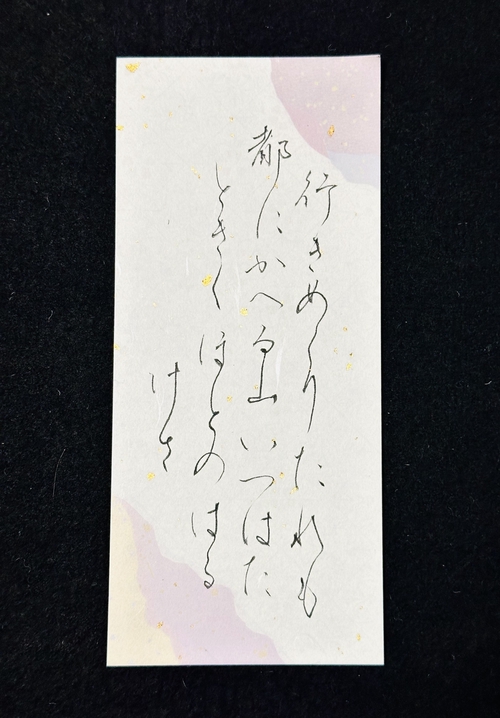 行きめくりたれも
都にかへる山いつはた
ときくほとのはる
けさ